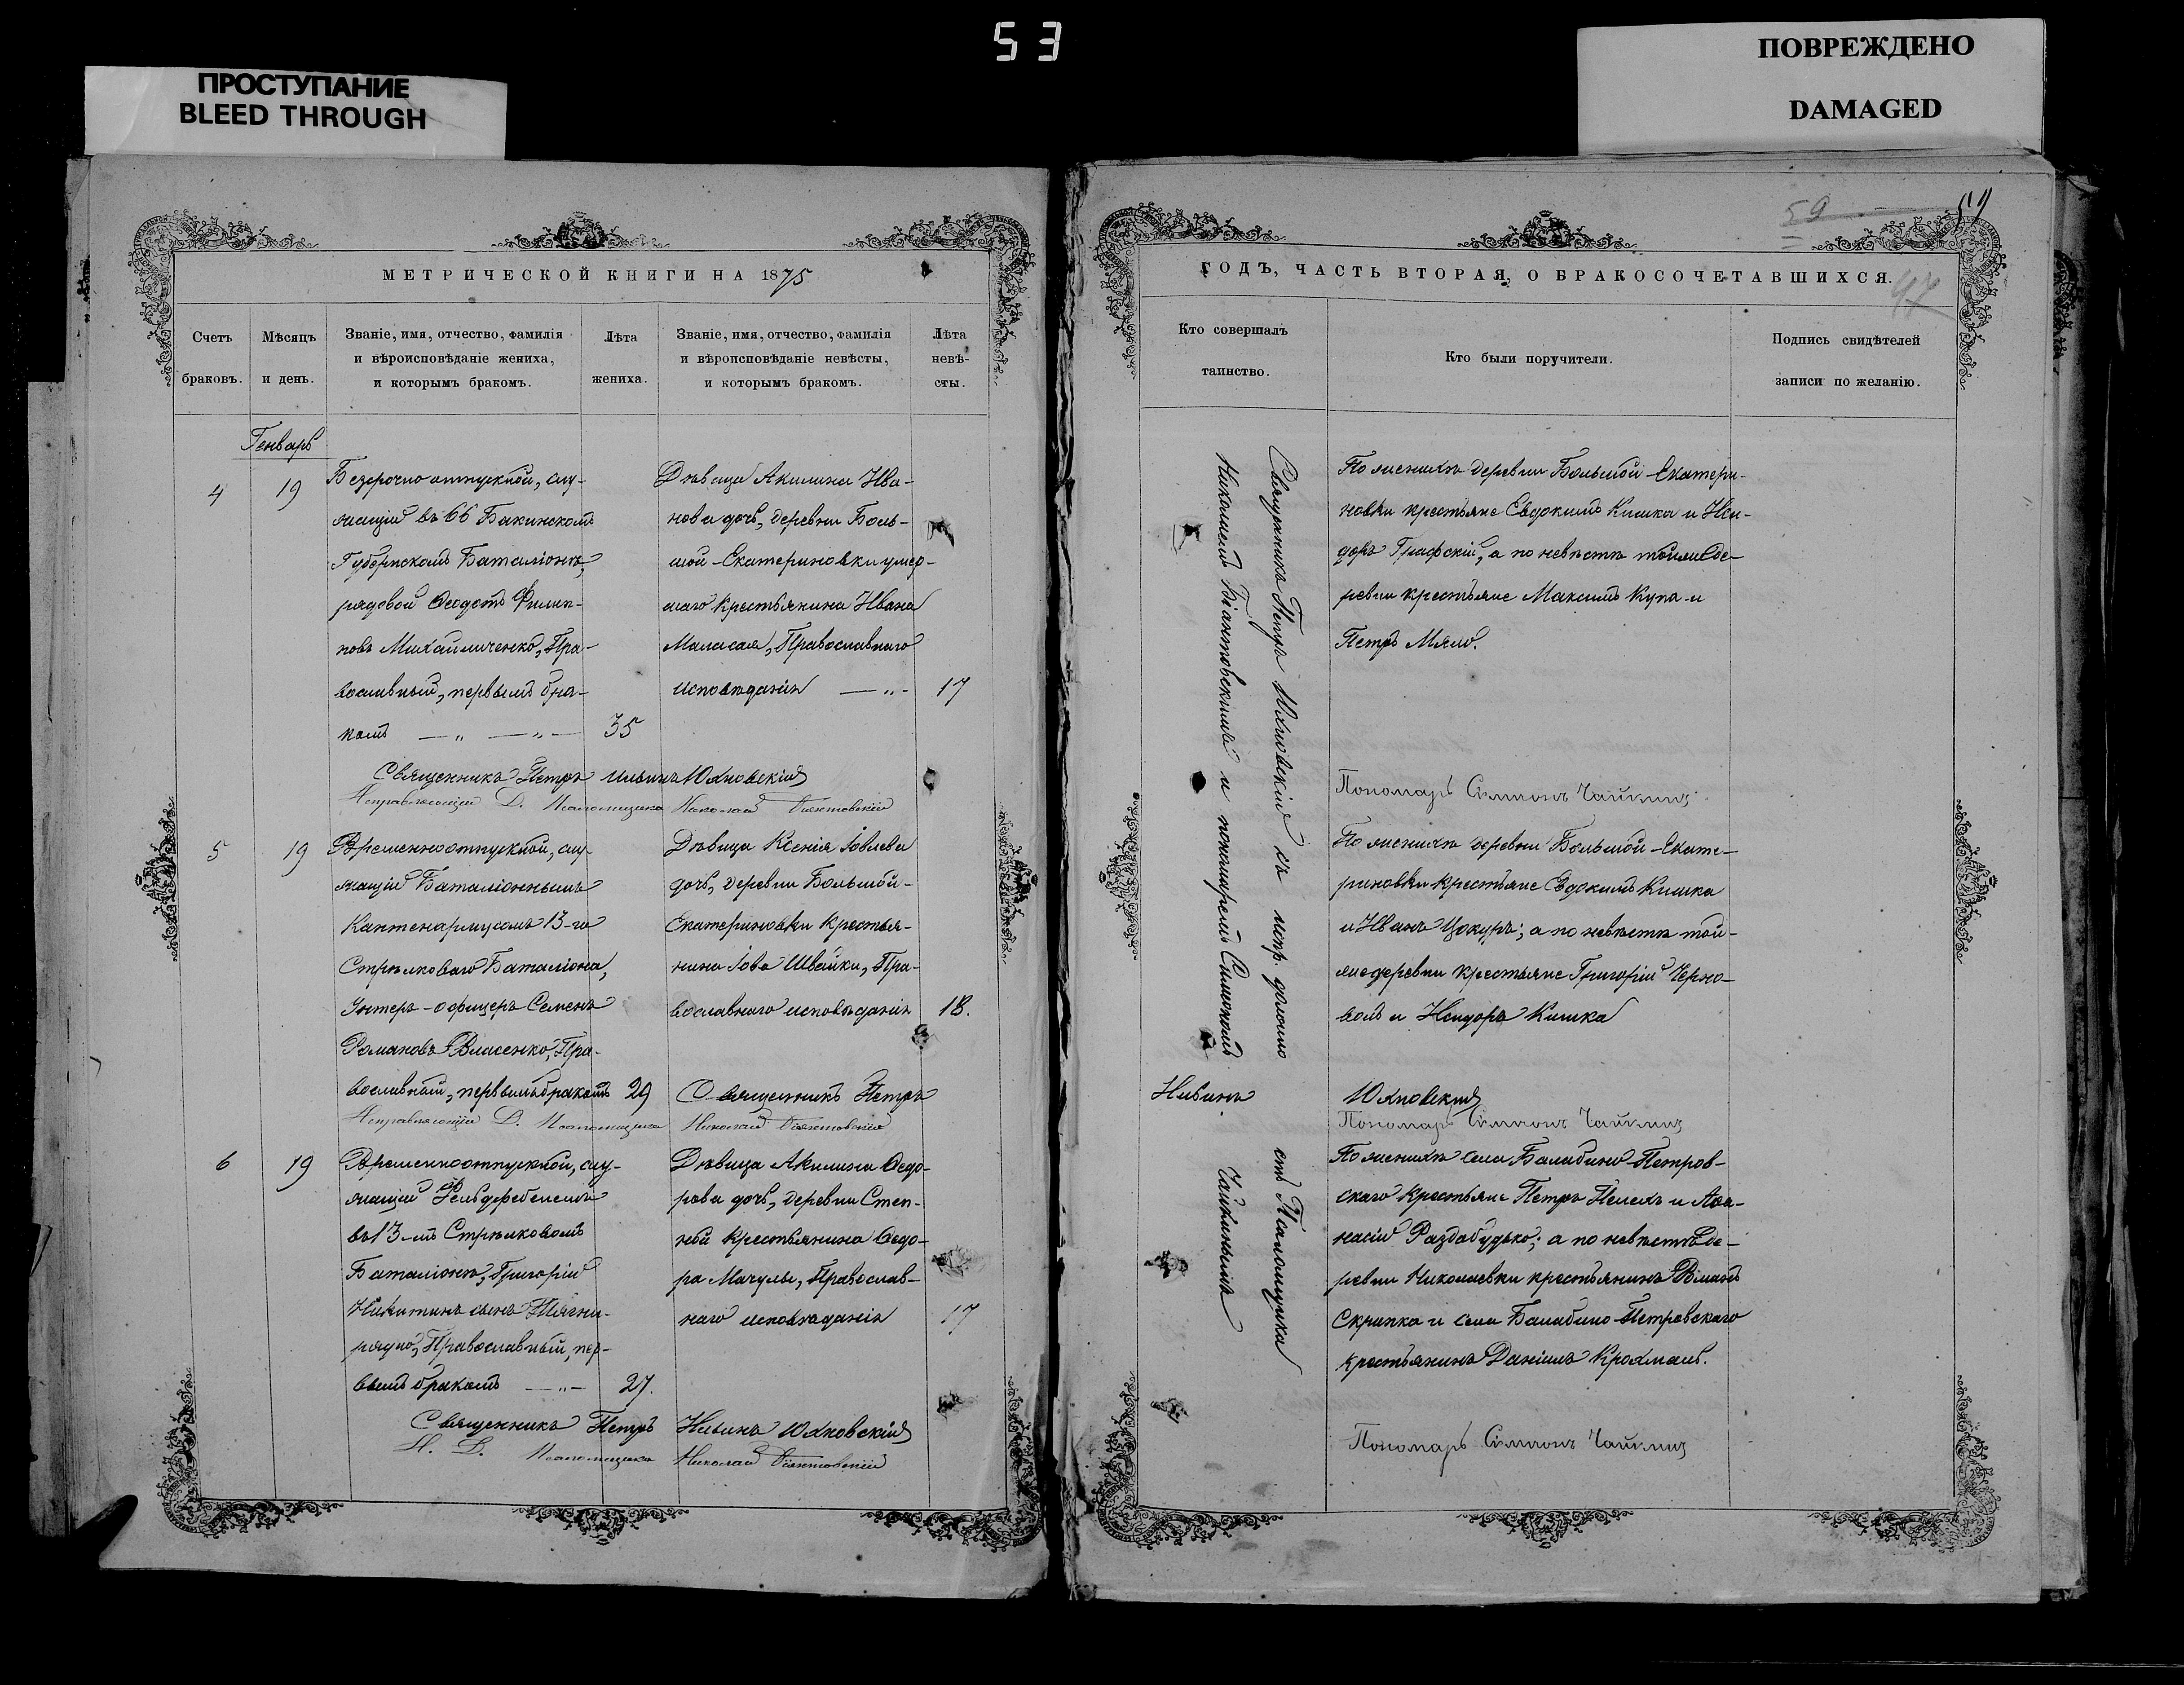 53
ПРОСТУПАНИЕ
BLEED THROUGH
ПОВРЕЖДЕНО
DAMAGED
МЕТРИЧЕСКОЙ КНИГИ НА 1875
Счетъ
браковъ.
Мѣсяцъ
и день.
Званіе, имя, отчество, фамилія
и вѣроисповѣданіе жениха,
и которымъ бракомъ.
Лѣта
жениха.
Званіе, имя, отчество, фамилія
и вѣроисповѣданіе невѣсты,
и которымъ бракомъ.
Лѣта
невѣ-
сты.
Генварь
4
19
Безсрочно отпускной, слу-
жащій въ 66 Бакинскомъ
Губернскомъ Баталіонѣ,
рядовой Ѳеодотъ Филип-
повъ Михайличенко, Пра-
вославный, первымъ бра-
комъ
35
Дѣвица Акилина Ива-
нова дочь, деревни Боль-
шой-Екатериновки умер-
шаго крестьянина Ивана
Православнаго
исповѣданія
17
Священникъ Петръ Ильинъ Юхновскій
Исправляющій Д. Псаломщика Николай Біантовскій
5
19
Временноотпускной, слу-
жащій Баталіоннымъ
Каптенармусомъ 13-го
Стрѣлковаго Баталіона,
Унтеръ-офицеръ Семенъ
Романовъ Власенко, Пра-
вославный, первымъ бракомъ
29
Дѣвица Ксенія Іовлева
дочь, деревни Большой-
Екатериновки крестья-
нина Іова Швайки, Пра-
вославнаго исповѣданія
18.
Священникъ Петръ
Исправляющій Д. Псаломщика Николай Біантовскій
6
19
Временноотпускной, слу-
жащій Фельдфебелемъ
въ 13-мъ Стрѣлковомъ
Баталіонѣ, Григорій
Никитинъ сынъ
Православный, пер-
вымъ бракомъ
27.
Дѣвица Акилина Ѳедо-
рова дочь, деревни Степ-
ной крестьянина Ѳедо-
ра Мачулы, Православ-
наго исповѣданія
17
Священникъ Петръ Ильинъ Юхновскій
И. Д. Псаломщика Николай Біантовскій
59
47
ГОДЪ, ЧАСТЬ ВТОРАЯ, О БРАКОСОЧЕТАВШИХСЯ.
Кто совершалъ
таинство.
Кто были поручители.
Подпись свидѣтелей
записи по желанію.
Священникъ Петръ Юхновскій съ испр. должно
сть Псаломщика
Николаемъ Біантовскимъ и пономаремъ Симономъ
Чайкинымъ
По женихѣ деревни Большой-Екатери-
новки крестьяне Евдокимъ Кишка и Иси-
доръ Графскій, а по невѣстѣ той же де-
ревни крестьяне Максимъ Купа и
Петръ Мяло.
Пономарь Симонъ Чайкинъ
По женихѣ деревни Большой-Екате-
риновки крестьяне Евдокимъ Кишка
и Иванъ Цокуръ; а по невѣстѣ той-
же деревни крестьяне Григорій Черно-
волъ и Исидоръ Кишка
Ильинъ Юхновскій
Пономарь Симонъ Чайкинъ
По женихѣ села Балабино-Петров-
скаго крестьяне Петръ и Аѳа-
насій Раздабудько; а по невѣстѣ де-
ревни Николаевки крестьянинъ Власъ
Скрипка и села Балабино-Петровскаго
крестьянинъ Даніилъ Крохмаль.
Пономарь Симонъ Чайкинъ